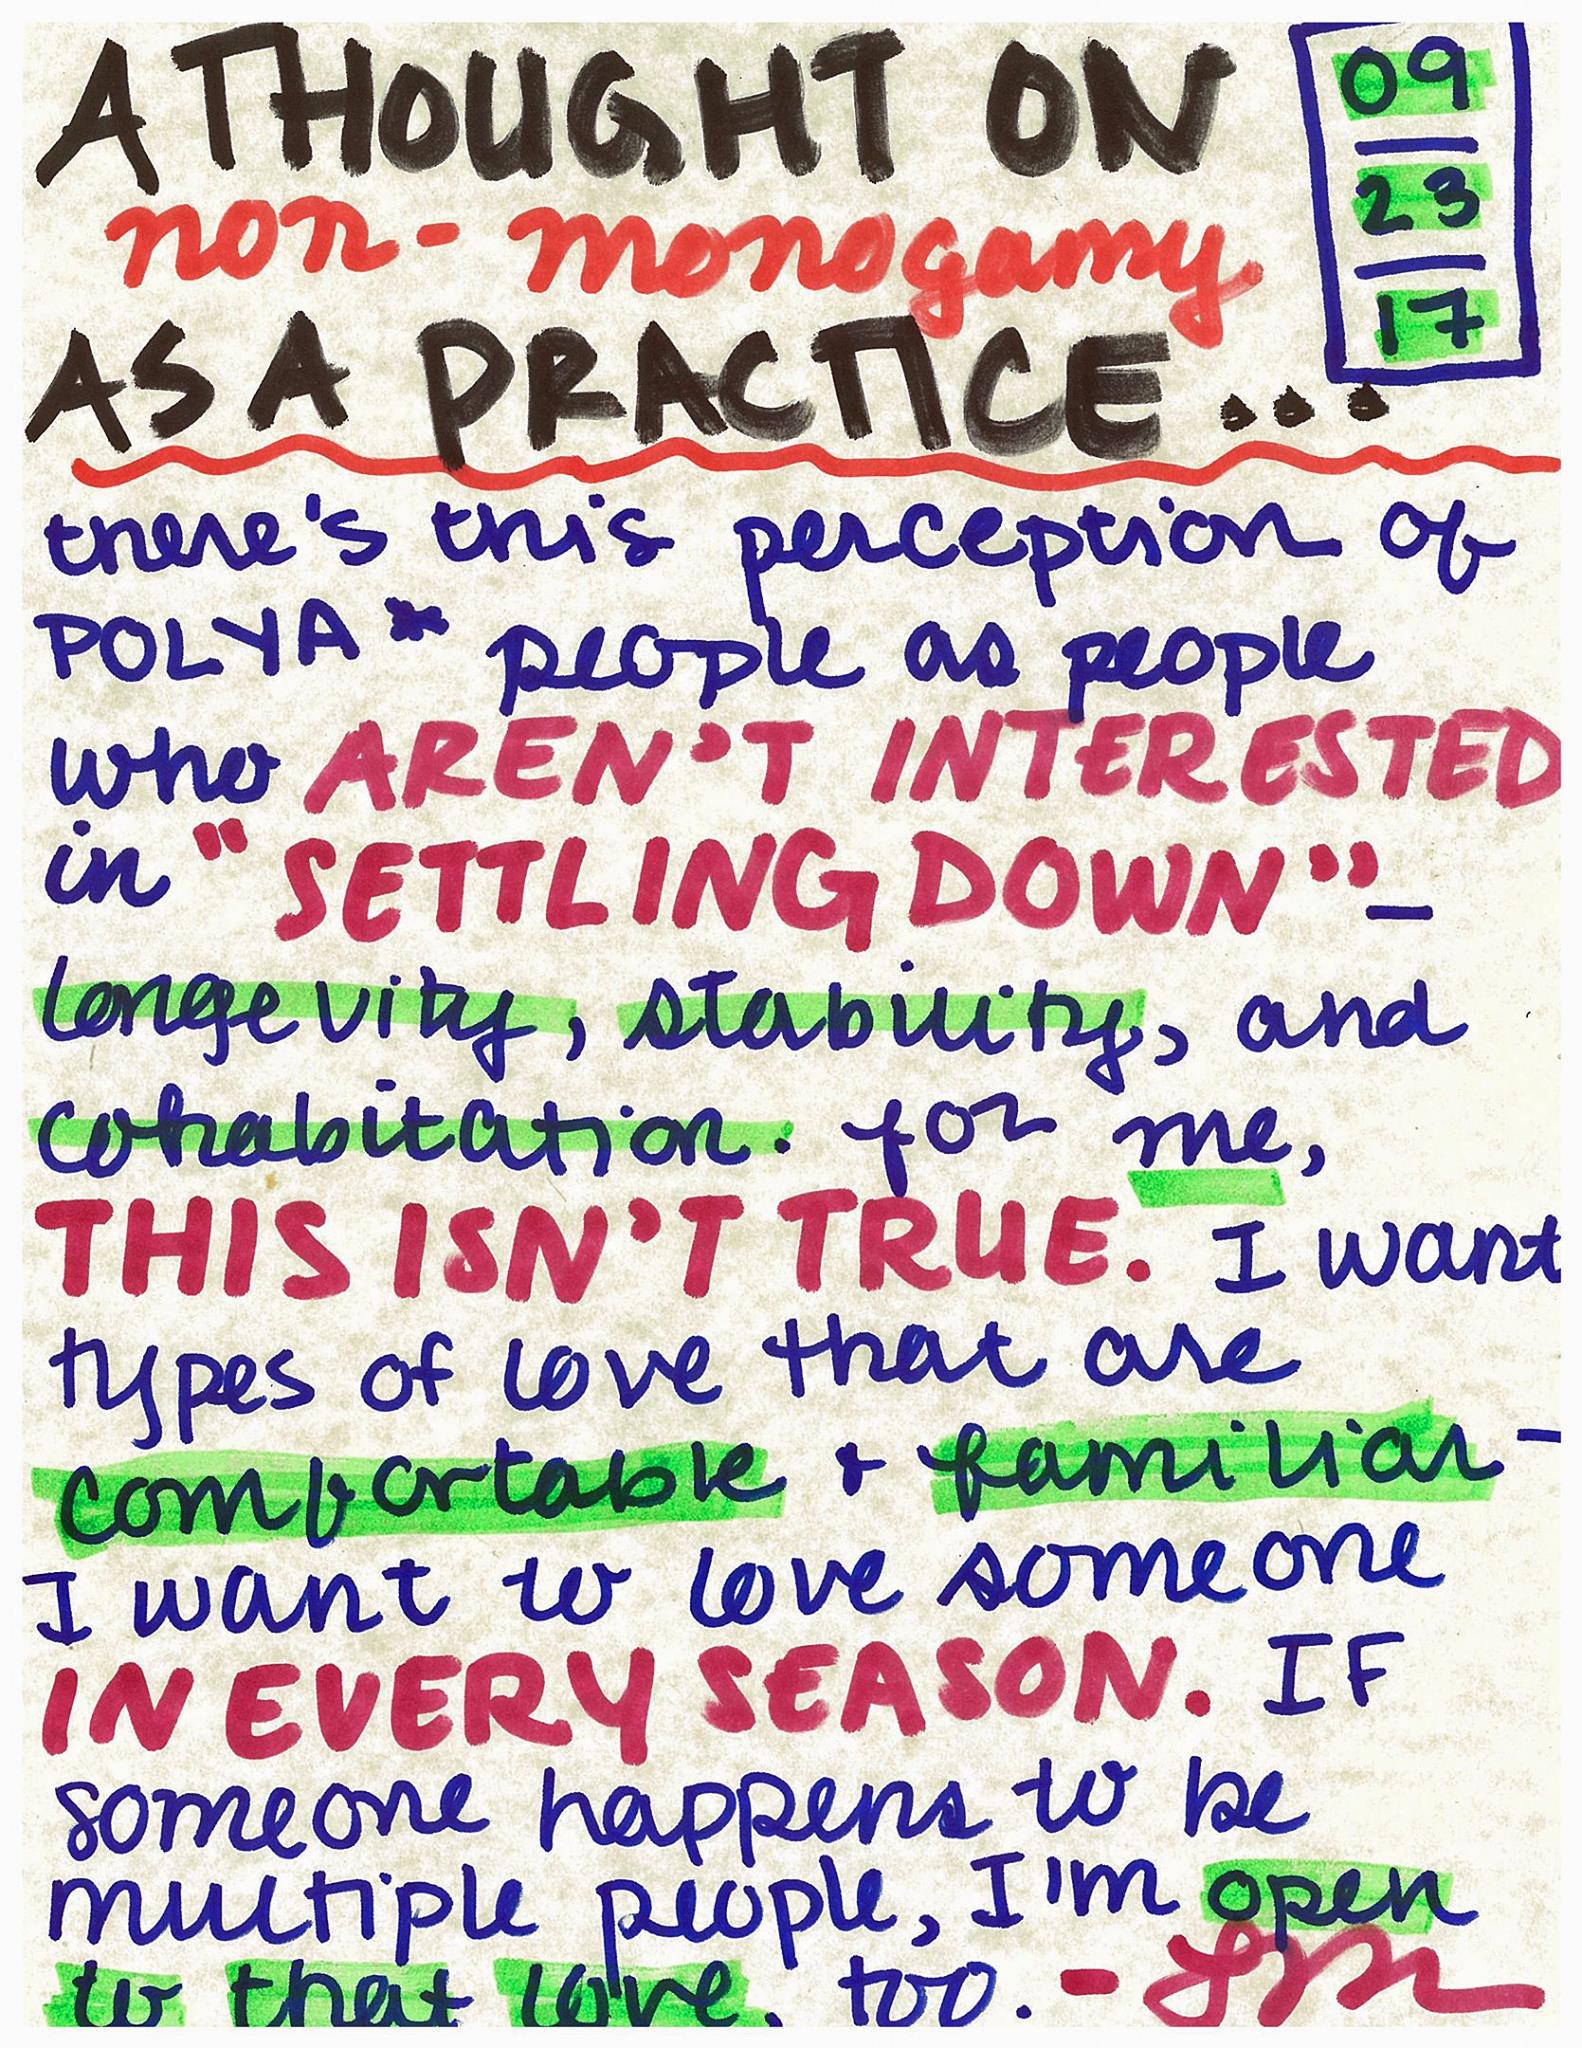 A THOUGHT ON
non-monogamy
AS A PRACTICE...
09
23
17
there's this perception of
POLYA* people as people
who AREN'T INTERESTED
in "SETTLING DOWN"-
longevity, stability, and
cohabitation. for me,
THIS ISN'T TRUE. I want
types of love that are
comfortable + familiar-
I want to love someone
IN EVERY SEASON. IF
someone happens to be
multiple people, I'm open
to that love, too. -